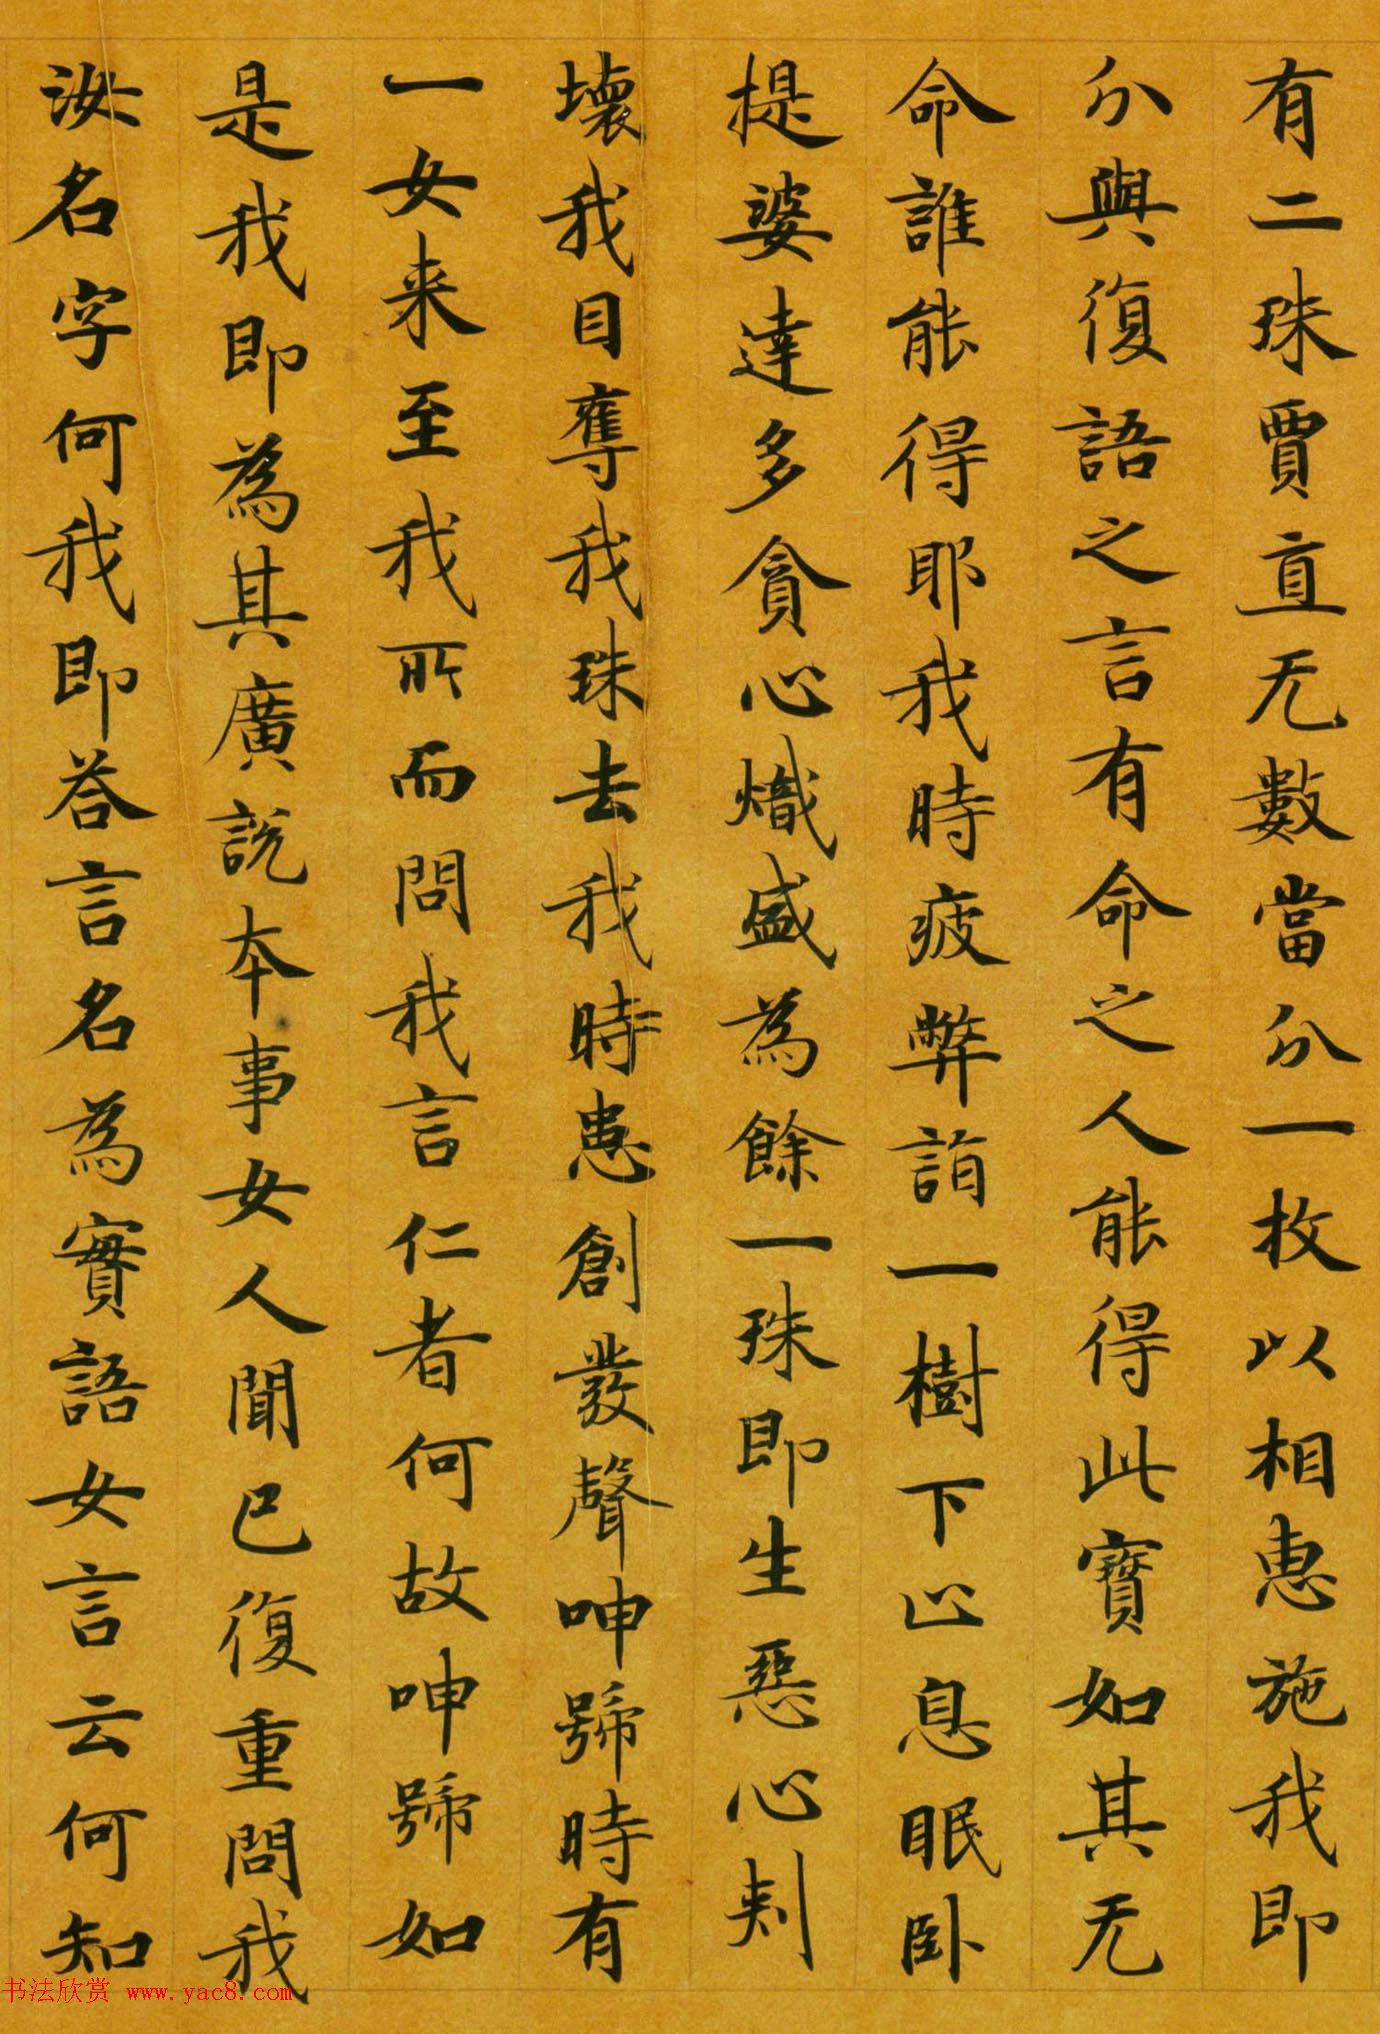 有二珠賈直无數當分一枚以相惠施我即
分與復語之言有命之人能得此寶如其无
命誰能得耶我時疲弊詣一樹下止息眠卧
提婆達多貪心熾盛為餘一珠即生惡心刾
壞我目奪我珠去我時患創發聲呻號時有
一女来至我所而問我言仁者何故呻號如
是我即為其廣説本事女人聞已復重問我
汝名字何我即荅言名為實語女言云何知
书法欣赏 www.yac8.com